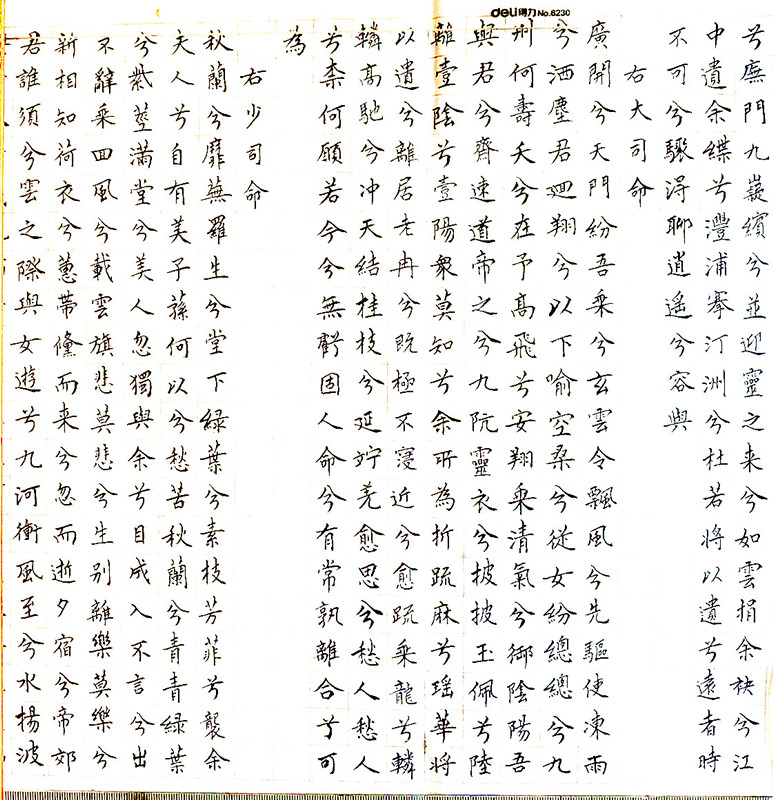 deli得力No.6230
兮廡門九嶷繽兮並迎靈之来兮如雲捐余袂兮江
中遺余緤兮澧浦搴汀洲兮杜若將以遺兮遠者時
不可兮驟淂聊逍遥兮容與
右大司命
廣開兮天門紛吾乘兮玄雲令飄風兮先驅使凍雨
兮洒塵君迴翔兮以下喻空桑兮從女紛總總兮九
州何壽夭兮在予高飛兮安翔乘清氣兮御陰陽吾
與君兮齋速道帝之兮九阬靈衣兮披披玉佩兮陸
離壹陰兮壹陽衆莫知兮余所為折疏麻兮瑶華将
以遺兮離居老冉兮既極不寖近兮愈疏乘龍兮轔
轔高馳兮冲天結桂枝兮延竚羌愈思兮愁人愁人
兮柰何願若今兮無虧固人命兮有常孰離合兮可
為
右少司命
秋蘭兮靡蕪羅生兮堂下緑葉兮素枝芳菲兮襲余
夫人兮自有美子蓀何以兮愁苦秋蘭兮青青緑葉
兮紫莖滿堂兮美人忽獨與余兮目成入不言兮出
不辭乘囬風兮載雲旗悲莫悲兮生别離樂莫樂兮
新相知荷衣兮蕙帶儵而来兮忽而逝夕宿兮帝郊
君誰須兮雲之際與女遊兮九河衝風至兮水揚波